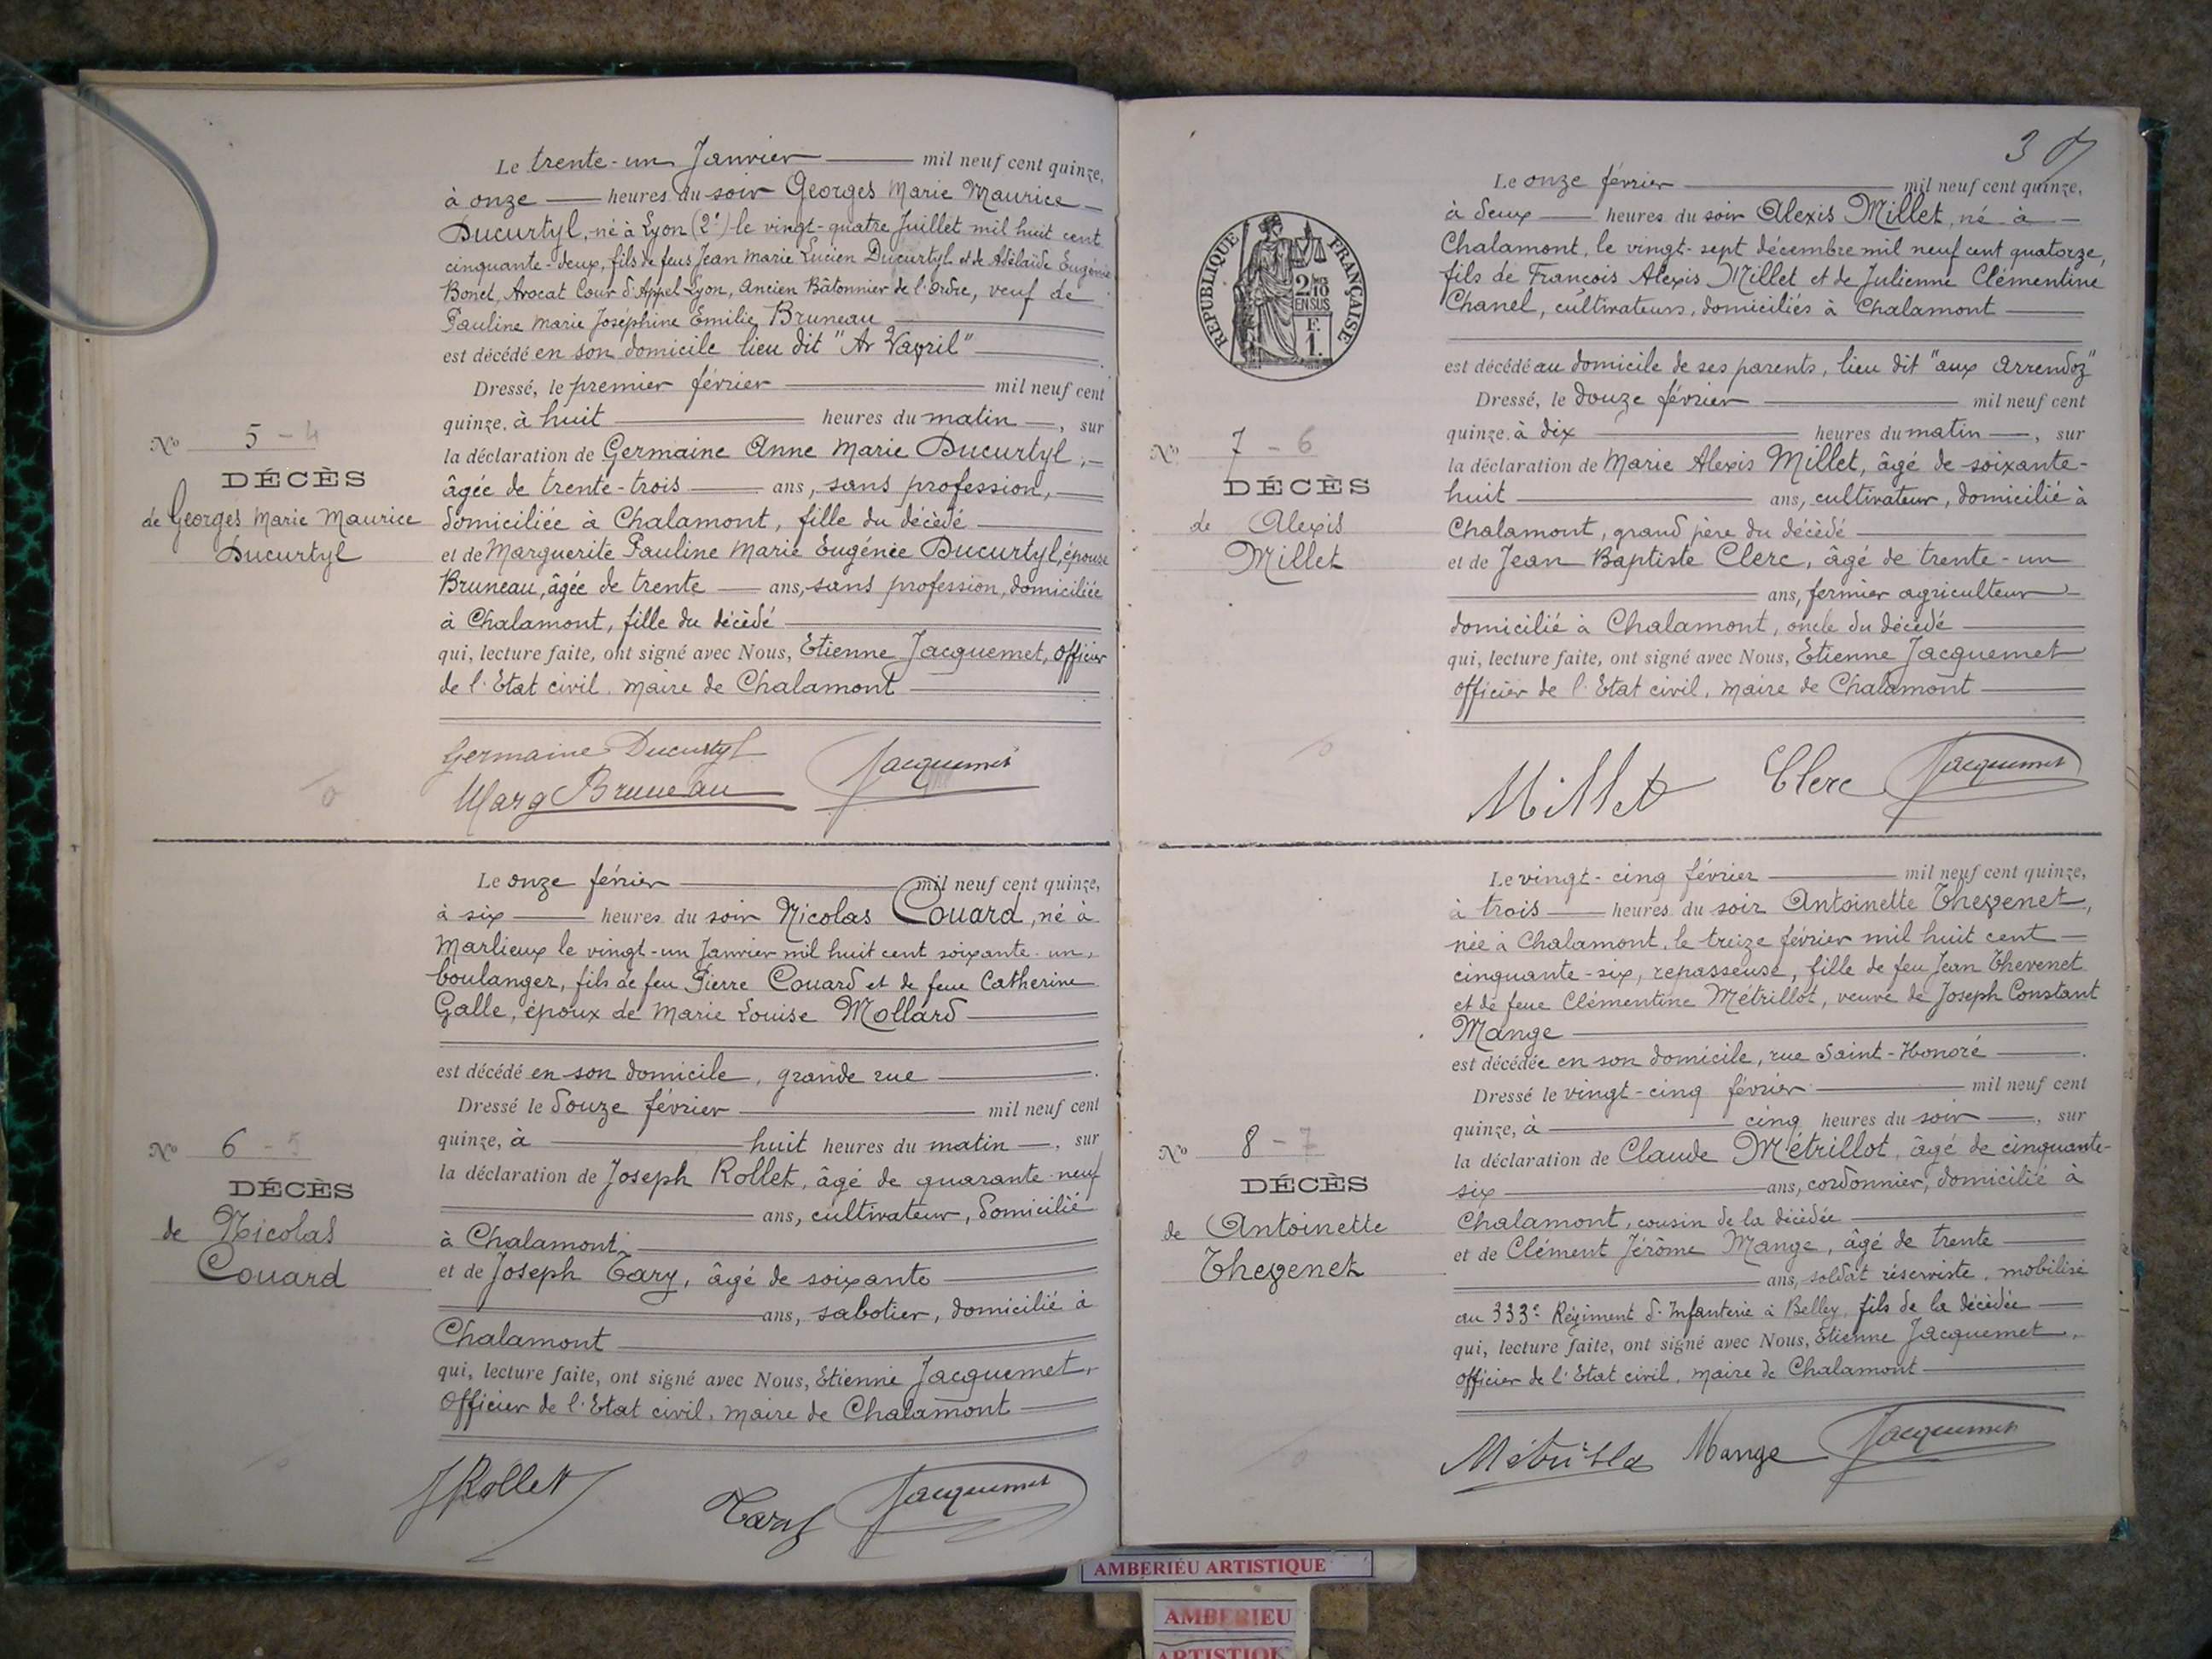 Le trente-un Janvier mil neuf cent quinze,
à onze heures du soir Georges Marie Maurice
Ducurtyl, né à Lyon (2e) le vingt-quatre Juillet mil huit cent
cinquante-deux, fils de feus Jean Marie Lucien Ducurtyl et de Adélaïde Eugénie
Bonet, Avocat Cour d'Appel Lyon, ancien Bâtonnier de l'ordre, veuf de
Pauline Marie Joséphine Emilie Bruneau
est décédé en son domicile lieu dit
Dressé, le premier février mil neuf cent
quinze, à huit heures du matin, sur
No 5 - 4
la déclaration de Germaine Anne Marie Ducurtyl,
DÉCÈS
âgée de trente-trois ans, sans profession,
de Georges Marie Maurice
domiciliée à Chalamont, fille du décédé
Ducurtyl
et de Marguerite Pauline Marie Eugénie Ducurtyl, épouse
Bruneau, âgée de trente ans, sans profession, domiciliée
à Chalamont, fille du décédé
qui, lecture faite, ont signé avec Nous, Etienne Jacquemet, officier
de l'Etat civil, maire de Chalamont
Germaine Ducurtyl
Marg Bruneau
Jacquemet
Le onze février mil neuf cent quinze,
à six heures du soir Nicolas Couard, né à
Marlieux le vingt-un Janvier mil huit cent soixante-un,
boulanger, fils de feu Pierre Couard et de feue Catherine
Galle, époux de Marie Louise Mollard
est décédé en son domicile, grande rue
Dressé le douze février mil neuf cent
quinze, à huit heures du matin, sur
No 6 - 5
la déclaration de Joseph Rollet, âgé de quarante-neuf
DÉCÈS
ans, cultivateur, domicilié
de Nicolas
à Chalamont
Couard
et de Joseph Tary, âgé de soixante
ans, sabotier, domicilié à
Chalamont
qui, lecture faite, ont signé avec Nous, Etienne Jacquemet,
Officier de l'Etat civil, maire de Chalamont
J Rollet
Tary
Jacquemet
3
Le onze février mil neuf cent quinze,
à deux heures du soir Alexis Millet, né à
Chalamont, le vingt-sept décembre mil neuf cent quatorze,
fils de François Alexis Millet et de Julienne Clémentine
Chanel, cultivateurs, domiciliés à Chalamont
REPUBLIQUE FRANÇAISE
2/10 EN SUS
F. 1.
est décédé au domicile de ses parents, lieu dit "aux Arrendoz"
Dressé, le douze février mil neuf cent
quinze, à dix heures du matin, sur
No 7 - 6
la déclaration de Marie Alexis Millet, âgé de soixante-
DÉCÈS
huit ans, cultivateur, domicilié à
de Alexis
Chalamont, grand père du décédé
Millet
et de Jean Baptiste Clerc, âgé de trente-un
ans, fermier agriculteur
domicilié à Chalamont, oncle du décédé
qui, lecture faite, ont signé avec Nous, Etienne Jacquemet
officier de l'Etat civil, maire de Chalamont
Millet
Clerc
Jacquemet
Le vingt-cinq février mil neuf cent quinze,
à trois heures du soir Antoinette Thevenet,
née à Chalamont, le treize février mil huit cent
cinquante-six, repasseuse, fille de feu Jean Thevenet
et de feue Clémentine Métrillot, veuve de Joseph Constant
Mange
est décédée en son domicile, rue Saint-Honoré
Dressé le vingt-cinq février mil neuf cent
quinze, à cinq heures du soir, sur
No 8 - 7
la déclaration de Claude Métrillot, âgé de cinquante-
DÉCÈS
six ans, cordonnier, domicilié à
de Antoinette
Chalamont, cousin de la décédée
Thevenet
et de Clément Jérôme Mange, âgé de trente
ans, soldat réserviste, mobilisé
au 333e Régiment d'Infanterie à Belley, fils de la décédée
qui, lecture faite, ont signé avec Nous, Etienne Jacquemet,
officier de l'Etat civil, maire de Chalamont
Mange
Jacquemet
AMBERIEU ARTISTIQUE
AMBERIEU
ARTISTIQUE